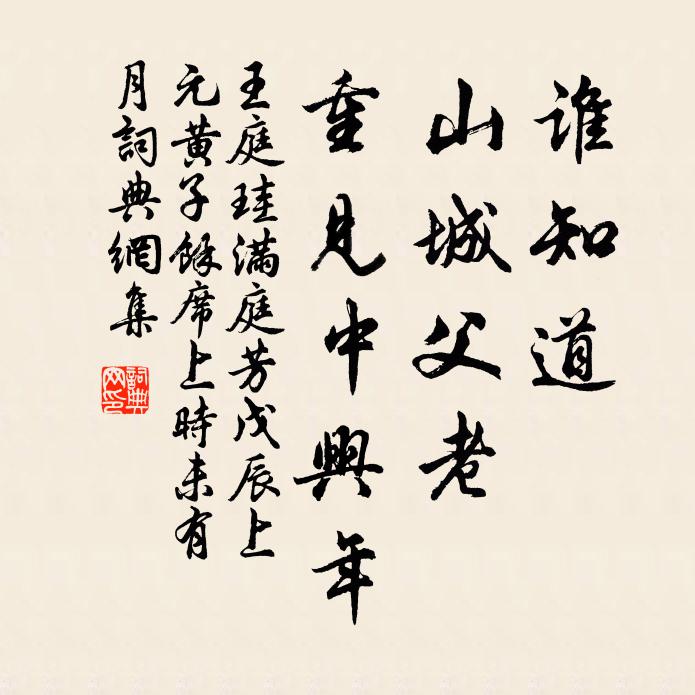 誰知道
山城父老
重見中興年
王庭珪滿庭芳戊辰上
元黃子餘席上時未有
月詞典網集
詞典網印